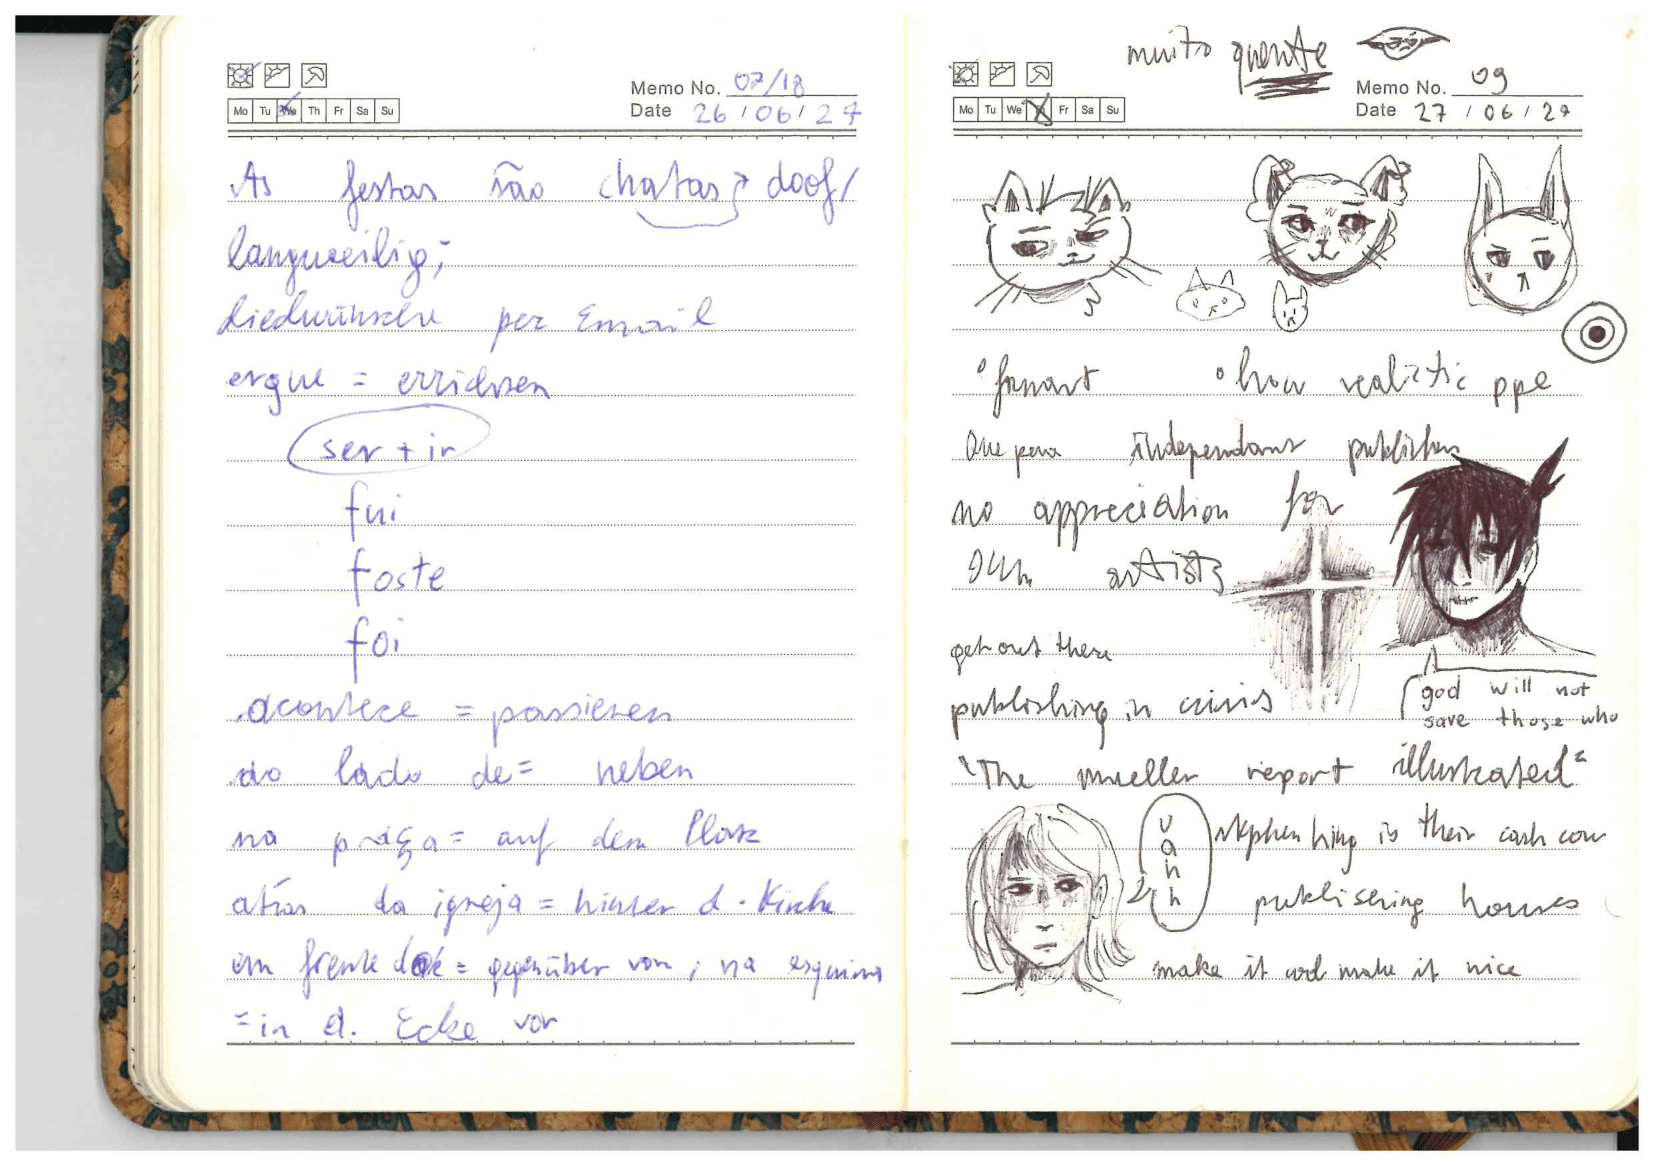 Memo No. 07/18
Mo Tu We Th Fr Sa Su
Date 26 / 06 / 27
As festas são chatas → doof/
langweilig;
per Email
ergue = errichten
ser + ir
fui
foste
foi
acontece = passieren
ao lado de = neben
na praça = auf dem Platz
atrás da igreja = hinter d. Kirche
em frente de = gegenüber von ; na esquina
= in d. Ecke von
muito quente
Memo No. 09
Mo Tu We Fr Sa Su
Date 27 / 06 / 27
° fanart ° how realistic ppl
independant publishers
no appreciation for
artists
get out there
publishing in crisis
god will not
save those who
"The mueller report illustrated"
vahh
stephen king is their cash cow
publisering houses
make it and make it nice